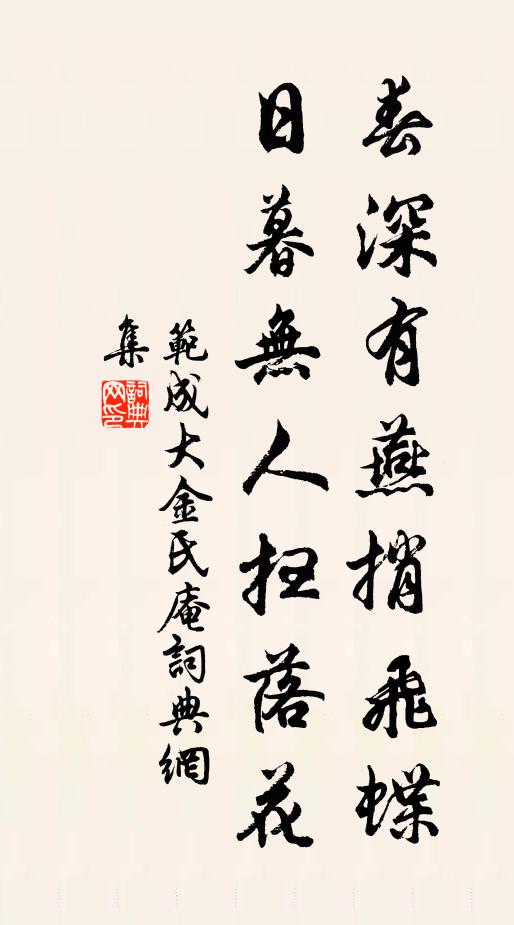 春深有燕捎飛蝶
日暮無人扫落花
範成大金氏庵詞典網
集
詞典網印